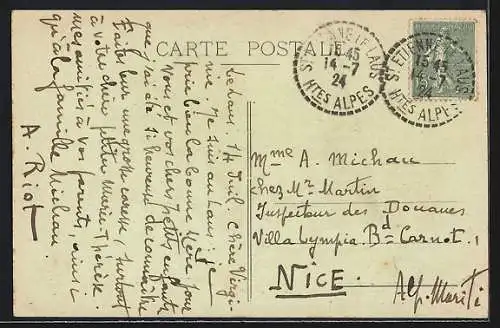 CARTE POSTALE
ST ETIENNE LE LAUS
15 45
14 - 7
24
HTES ALPES
ST ETIENNE LAUS
15 45
14 - 7
24
HTES ALPES
Le Laus. 14 Juil. Chère Virgi-
nie Je suis au Laus: Je
prie bien la bonne Mère pour
vous et vos chers petits enfants
que j'ai été si heureuse de connaître
Faites leur une grosse caresse, surtout
à votre chère petite Marie-Thérèse.
mes amitiés à vos parents, ainsi
qu'à la famille Michau
A. Riot
Mme A. Michau
Chez Mr Martin
Inspecteur des Douanes
Villa Lympia. Bd Carnot. 1
NICE.
Alp. Marit.